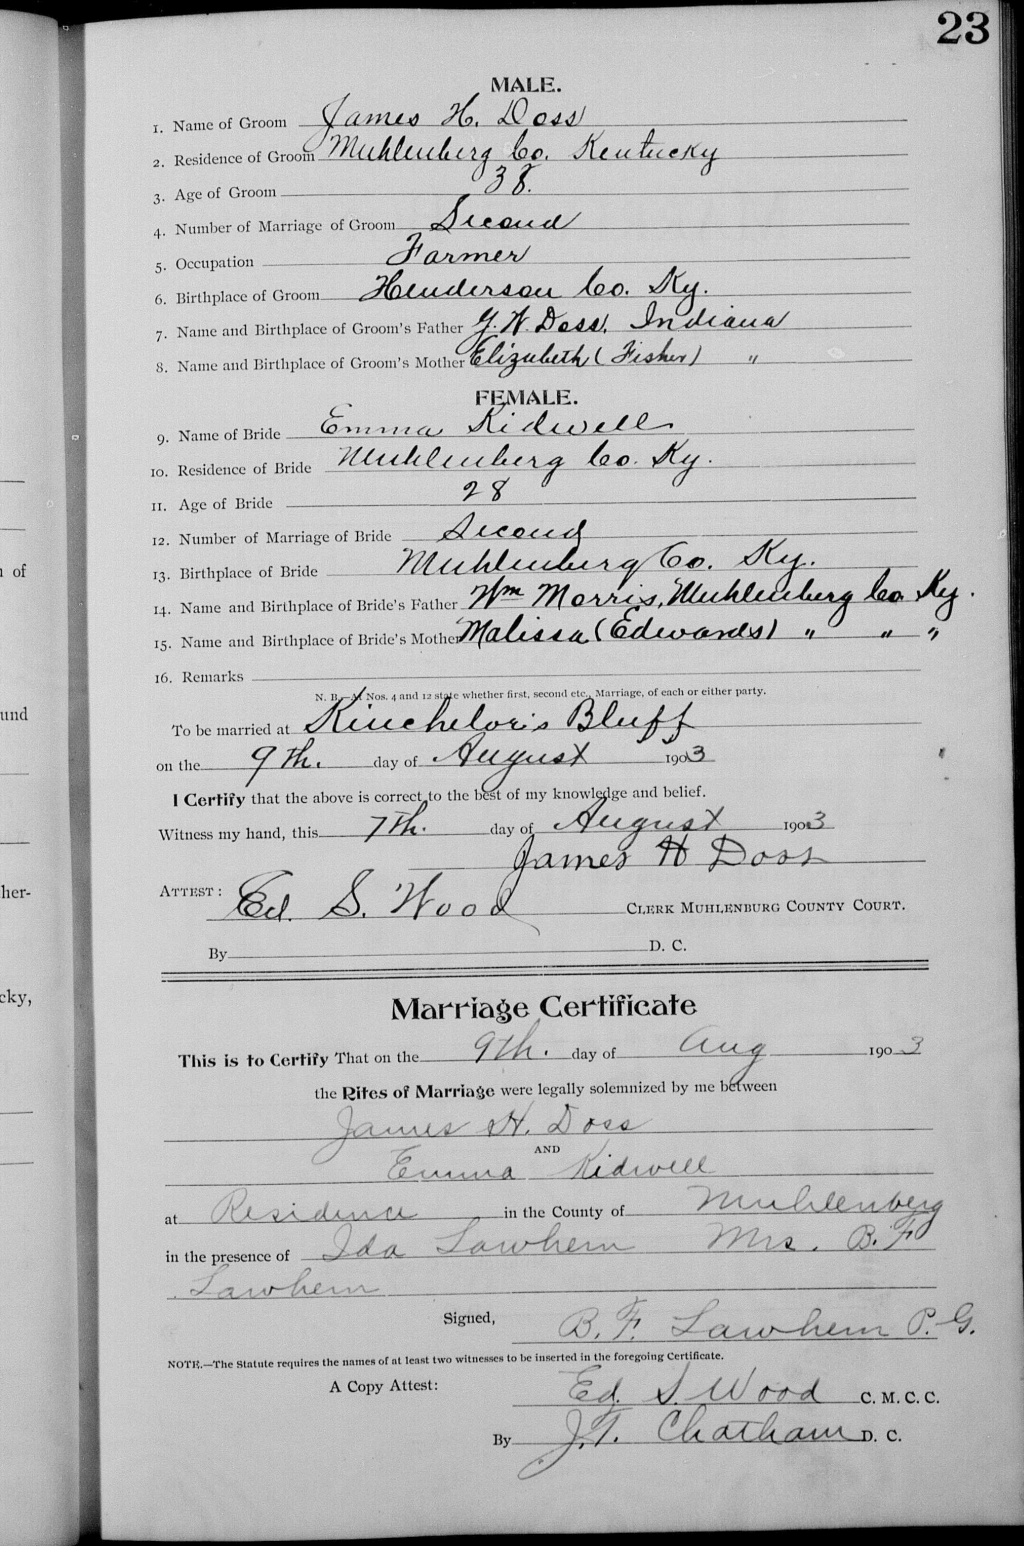 23
MALE.
1. Name of Groom James H. Doss
2. Residence of Groom Muhlenberg Co. Kentucky
3. Age of Groom 38.
4. Number of Marriage of Groom Second
5. Occupation Farmer
6. Birthplace of Groom Henderson Co. Ky.
7. Name and Birthplace of Groom's Father G. W. Doss, Indiana
8. Name and Birthplace of Groom's Mother Elizabeth (Fisher) "
FEMALE.
9. Name of Bride Emma Kidwell
10. Residence of Bride Muhlenberg Co. Ky.
11. Age of Bride 28
12. Number of Marriage of Bride Second
13. Birthplace of Bride Muhlenburg Co. Ky.
14. Name and Birthplace of Bride's Father Wm Morris, Muhlenberg Co. Ky.
15. Name and Birthplace of Bride's Mother Malissa (Edwards) " " "
16. Remarks
N. B.—At Nos. 4 and 12 state whether first, second etc., Marriage, of each or either party.
To be married at Kincheloe's Bluff
on the 9th. day of August 1903
I Certify that the above is correct to the best of my knowledge and belief.
Witness my hand, this 7th. day of August 1903
James H Doss
ATTEST: Ed. S. Wood CLERK MUHLENBURG COUNTY COURT.
By D. C.
Marriage Certificate
This is to Certify That on the 9th. day of Aug 1903
the Rites of Marriage were legally solemnized by me between
James H. Doss
AND
Emma Kidwell
at Residence in the County of Muhlenberg
in the presence of Ida Lawhern Mrs. B. F
Lawhern
Signed, B. F. Lawhern P. G.
NOTE.—The Statute requires the names of at least two witnesses to be inserted in the foregoing Certificate.
A Copy Attest: Ed. S. Wood C. M. C. C.
By J. T. Chatham D. C.
n of
und
her-
cky,